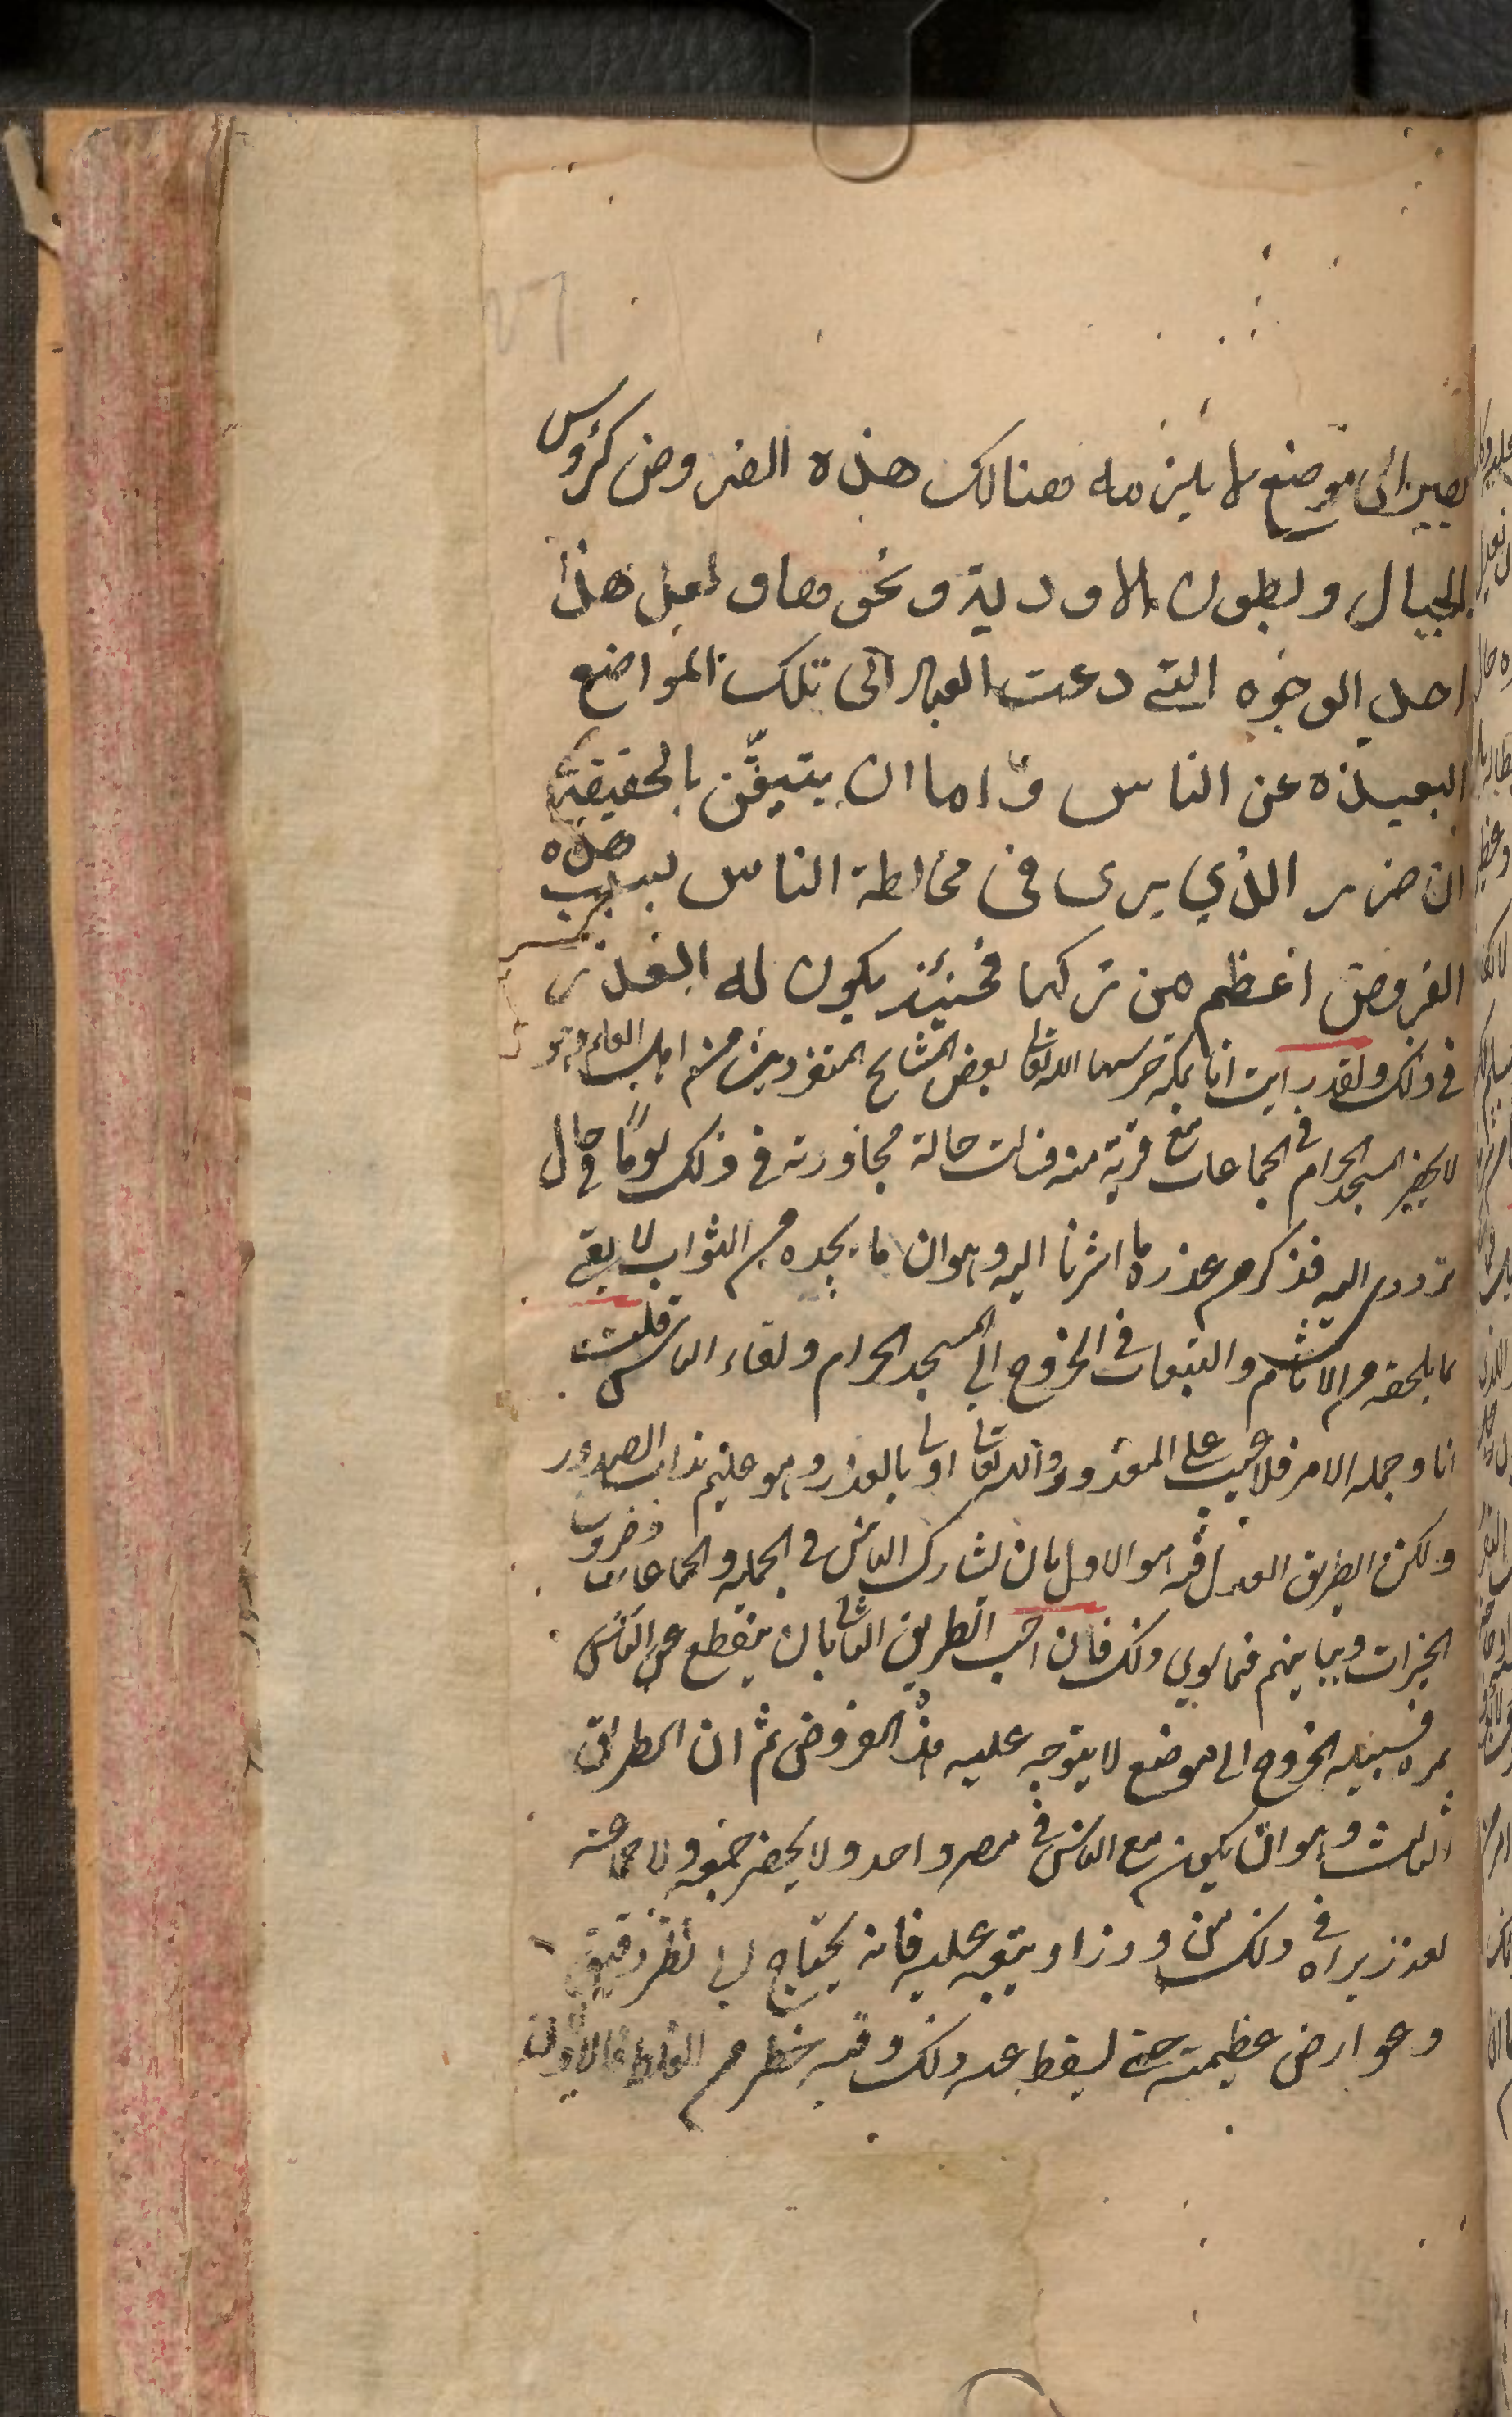 يصير الى موضع لا يلزمه هنالك هذه الفروض كرؤس
الجبال وبطون الاودية ونحوها ولعل هذا
احد الوجوه التي دعت العباد الى تلك المواضع
البعيدة عن الناس واما ان يتيقن بالحقيقة
ان ضرر الذي يرى في مخالطة الناس بسبب هذه
الفروض اعظم من تركها فحينئذ يكون له العذر
في ذلك ولقد رايت انا بمكة حرسها الله تعا بعض المشايخ المتفردين من اهل العلم وهو
لا يحضر المسجد الحرام في الجماعات مع قربه منه فنالت حاله مجاورته في ذلك يوما وحال
ترددي اليه فذكر من عذره ما اشرنا اليه وهو ان ما يجده من الثواب لا يفي
بما يلحقه من الاثام والتبعات في الخروج الى المسجد الحرام ولقاء الناس قلت
انا وجملة الامر فلا عيب على المعذور والله تعا اولى بالعذر وهو عليم بذات الصدور
ولكن الطريق العدل فيه هو الاول بان يشارك الناس في الجمعة والجماعات وضروب
الخيرات ويباينهم فيما سوى ذلك فان احب الطريق الثاني بان ينقطع عن الناس
بمرة فسبيله الخروج الى موضع لا يتوجه عليه هذه الفروض ثم ان الطريق
الثالث وهو ان يكون مع الناس في مصر واحد ولا يحضر جمعة ولا جماعة
لعذر يراه في ذلك من وزر او يتوجه عليه فانه يحتاج الى نظر دقيق
وعوارض عظيمة حتى يسقط عنه ذلك وفيه خطر من الغلط فالاولان